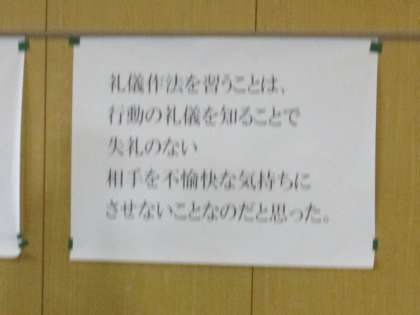 礼儀作法を習うことは、
行動の礼儀を知ることで
失礼のない
相手を不愉快な気持ちに
させないことなのだと思った。